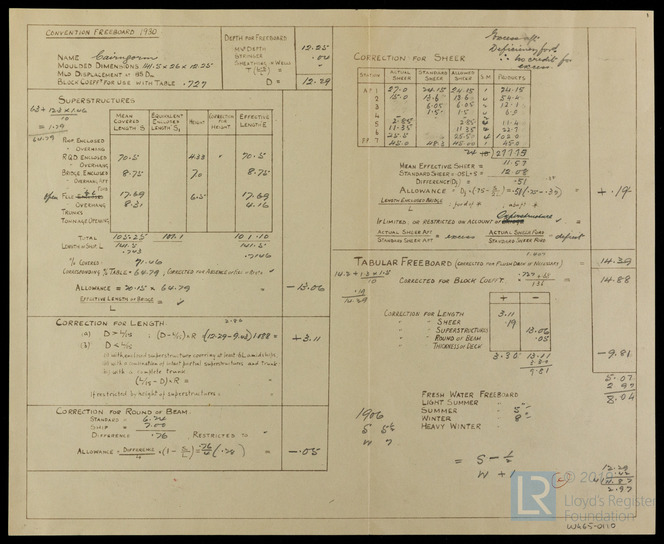 CONVENTION FREEBOARD 1930
NAME Cairngorm
MOULDED DIMENSIONS 141.5 x 26 x 12.25
MLD DISPLACEMENT AT 85 DM
BLOCK COEFFT FOR USE WITH TABLE .727
DEPTH FOR FREEBOARD
MLD DEPTH 12.25
STRINGER .04
D = 12.29
SUPERSTRUCTURES
= 1.79
64.79
MEAN COVERED LENGTH S
EQUIVALENT ENCLOSED LENGTH S,
HEIGHT
CORRECTION FOR HEIGHT
EFFECTIVE LENGTH E
POOP ENCLOSED
" OVERHANG
RQD ENCLOSED 70.5 4.33 70.5
" OVERHANG
BRIDGE ENCLOSED 8.75 7.0 8.75
" OVERHANG AFT
" " FORD
open FCLE ENCLOSED 17.69 6.5 17.69
OVERHANG 8.31 4.16
TRUNKS
TONNAGE OPENING
TOTAL 105.25 101.1 101.10
LENGTH OF SHIP L 141.5 141.5
.743 .7146
% COVERED 71.46
CORRESPONDING % TABLE = 64.79, CORRECTED FOR ABSENCE OF FCLE OR BRIDGE
ALLOWANCE = 20.15 x 64.79 = -13.06
EFFECTIVE LENGTH OF BRIDGE
L = ✓
CORRECTION FOR LENGTH
(A) D > L/15 : (D - L/15) x R (12.29 - 9.43) 1.088 = +3.11
(B) D < L/15
a) with enclosed superstructure covering at least .6L amidships
b) with a combination of intact partial superstructures and trunk
c) with a complete trunk
(L/15 - D) x R =
If restricted by height of superstructures =
CORRECTION FOR ROUND OF BEAM
STANDARD = 6.24
SHIP = 7.00
DIFFERENCE .76 , RESTRICTED TO ✓
ALLOWANCE = DIFFERENCE/4 x (1 - S/L) = .76/4 (.29) = -.05
Excess aft
Deficiency ford
∴ no credit for
excess
CORRECTION FOR SHEER
STATION ACTUAL SHEER STANDARD SHEER ALLOWED SHEER S.M. PRODUCTS
AP 1 27.0 24.15 24.15 1 24.15
2 15.0 13.6 13.6 4 54.4
3 6.05 6.05 2 12.1
4 1.5 1.5
5 2.85 2.85 4 11.4
6 11.35 11.35 2 22.7
FP 7 45.0 48.3 45.0 1 45.0
24
MEAN EFFECTIVE SHEER = 11.57
STANDARD SHEER = .05L + 5 = 12.08
DIFFERENCE (D1) = .51
ALLOWANCE = D1 x (.75 - S/2L) = .51 (.75 - ) = +.19
LENGTH ENCLOSED BRIDGE
L
IF LIMITED OR RESTRICTED ON ACCOUNT OF Superstructure
ACTUAL SHEER AFT / STANDARD SHEER AFT = excess ACTUAL SHEER FORD / STANDARD SHEER FORD = deficient
TABULAR FREEBOARD (CORRECTED FOR FLUSH DECK IF NECESSARY) = 14.39
10
.19
CORRECTED FOR BLOCK COEFFT. = 14.88
1.36
+ -
CORRECTION FOR LENGTH 3.11
" " SHEER .19
" " SUPERSTRUCTURES 13.06
" " ROUND OF BEAM .05
" " THICKNESS OF DECK
3.30 13.11
3.30
9.81
-9.81
5.07
2.97
8.04
FRESH WATER FREEBOARD
LIGHT SUMMER " "
SUMMER " 5"
WINTER " 8"
HEAVY WINTER " "
1906
S
W 7
= S - 1/2
W + 1
12.29
2.97
LR © 2019
Lloyd's Register
Foundation
WA65-0110